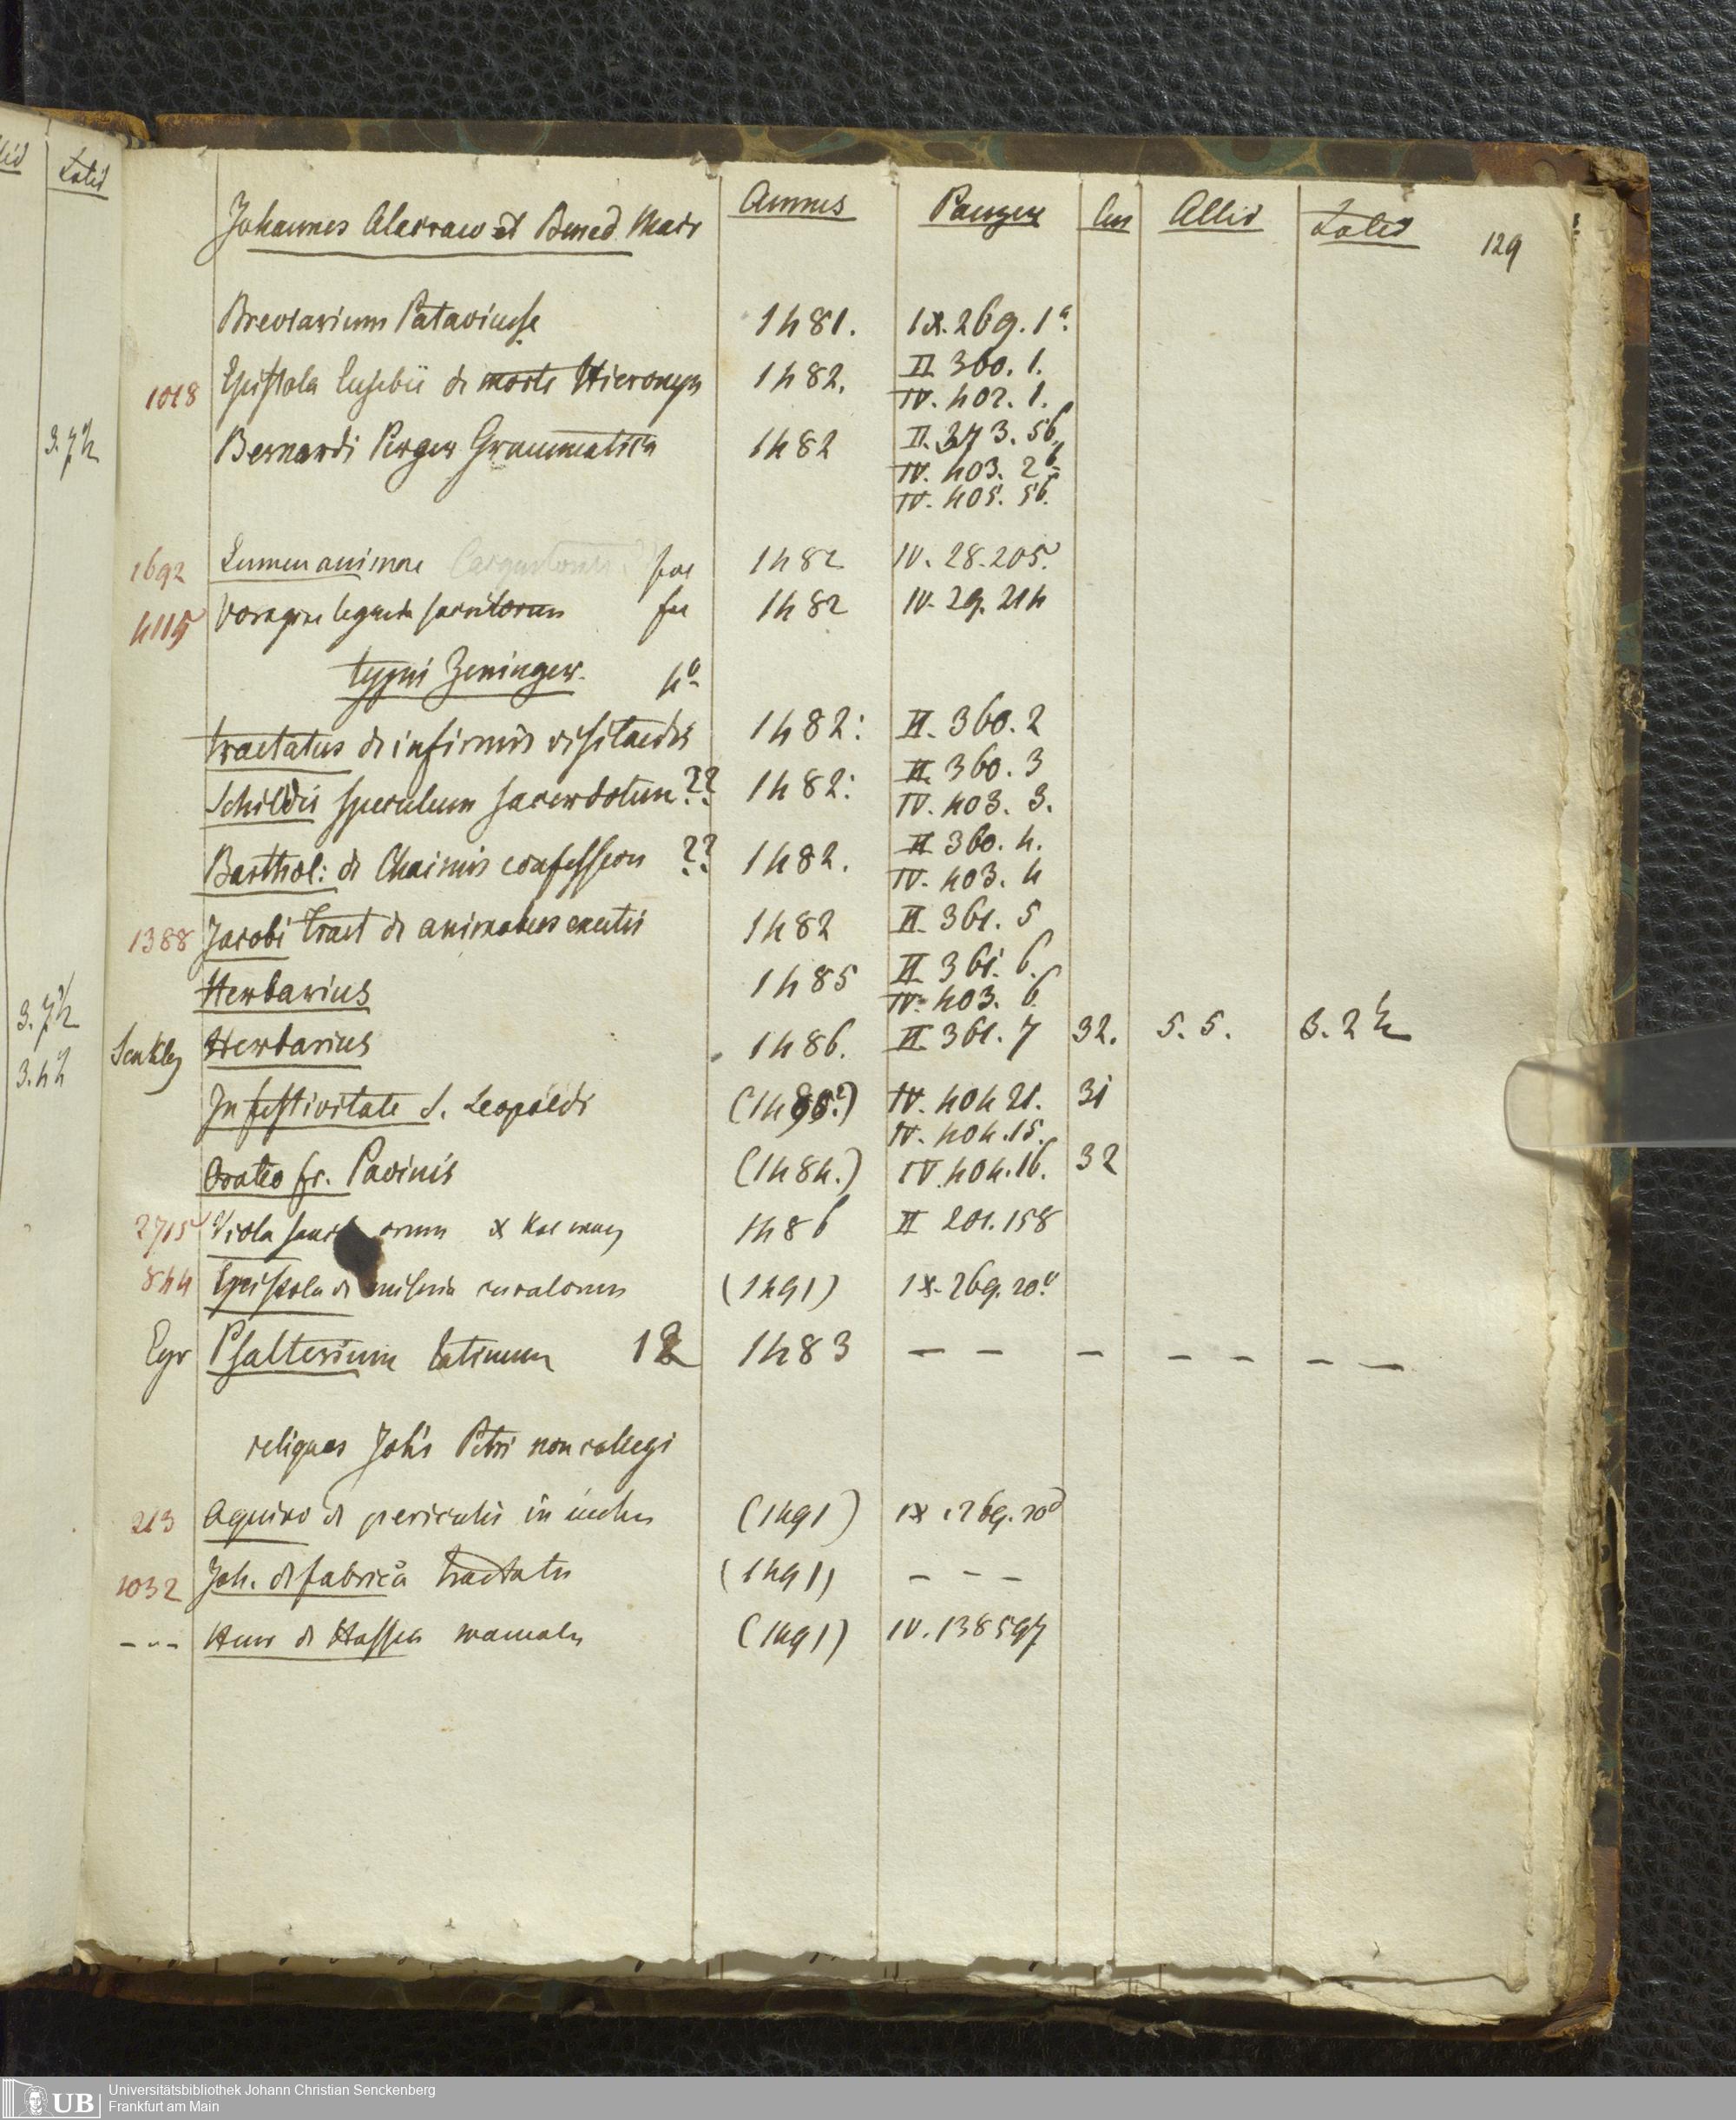 Latid
3. 7 4
3. 7 4
3. 4 4
Johannes Alacraw et Bened. Mair Annus Panzer lin Altid Latid 129
Breviarium Pataviense 1481. IX. 269. 1a.
1018 Epistola Eusebii de morte Hieronym 1482. II. 360. 1.
IV. 402. 1.
Bernardi Perger Grammatica 1482 II. 373. 56
IV. 403. 2b
IV. 405. 56.
1692 Lumen animae foe 1482 IV. 28. 205.
4115 Voragine legenda sanctorum foe 1482 IV. 29. 214
typi Zeninger. 4o
tractatus de infirmis visitandis 1482: II. 360. 2
Schildis speculum sacerdotum ?? 1482: II. 360. 3
IV. 403. 3.
Barthol: de Chaimis confession ?? 1482. II 360. 4.
IV. 403. 4
1388 Jacobi Tract de animabus exutis 1482 II. 361. 5
Herbarius 1485 II 361. 6.
IV. 403. 6
Senkbg Herbarius 1486. II 361. 7 32. 5. 5. 3. 2 4
In festivitate S. Leopoldi IV. 404 21. 31
IV. 404. 15.
Oratio fr. Pavinis (1484.) IV. 404. 16. 32
2715 Viola sanctorum 1486 II 201. 158
844 Epistola de miseria curatorum (1491) IX. 269. 20c
Eyr Psalterium latinum 12 1483 — — — — — — —
reliquas Joh's Petri non collegi
213 Aquino de periculis in (1491) IX. 269. 20d
1032 Joh. de fabrica tractatus (1491) - - -
- - - Henr de Hassia (1491) IV. 138 597
Universitätsbibliothek Johann Christian Senckenberg
Frankfurt am Main
UB